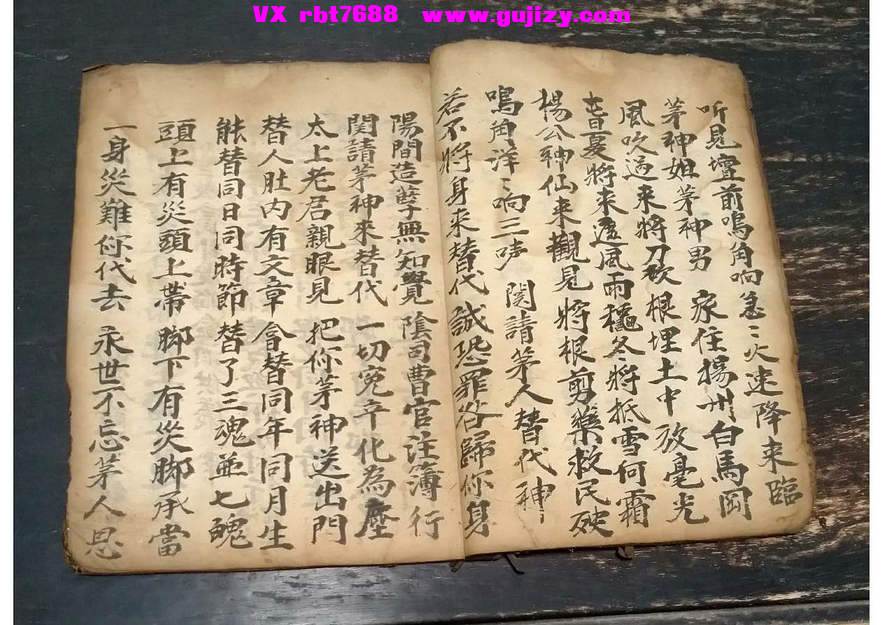 VX rbt7688 www.gujizy.com
听見壇前鳴角响 急〻火速降來臨
茅神姐茅神男 家住揚州白馬岡
風吹過来將刀砍 根埋土中放毫光
春夏將来遮風雨 秋冬將抵雪何霜
楊公神仙来觀見 將根剪藥救民殃
鳴角洋〻响三声 関請茅人替代神
若不將身来替代 誠恐罪咎歸你身
陽間造孽無知覺 陰司曹官注簿行
関請茅神來替代 一切冤辛化為塵
太上老君親眼見 把你茅神送出門
替人肚内有文章 會替同年同月生
能替同日同時節 替了三魂並七魄
頭上有災頭上帶 脚下有災脚承當
一身災難你代去 永世不忘茅人恩